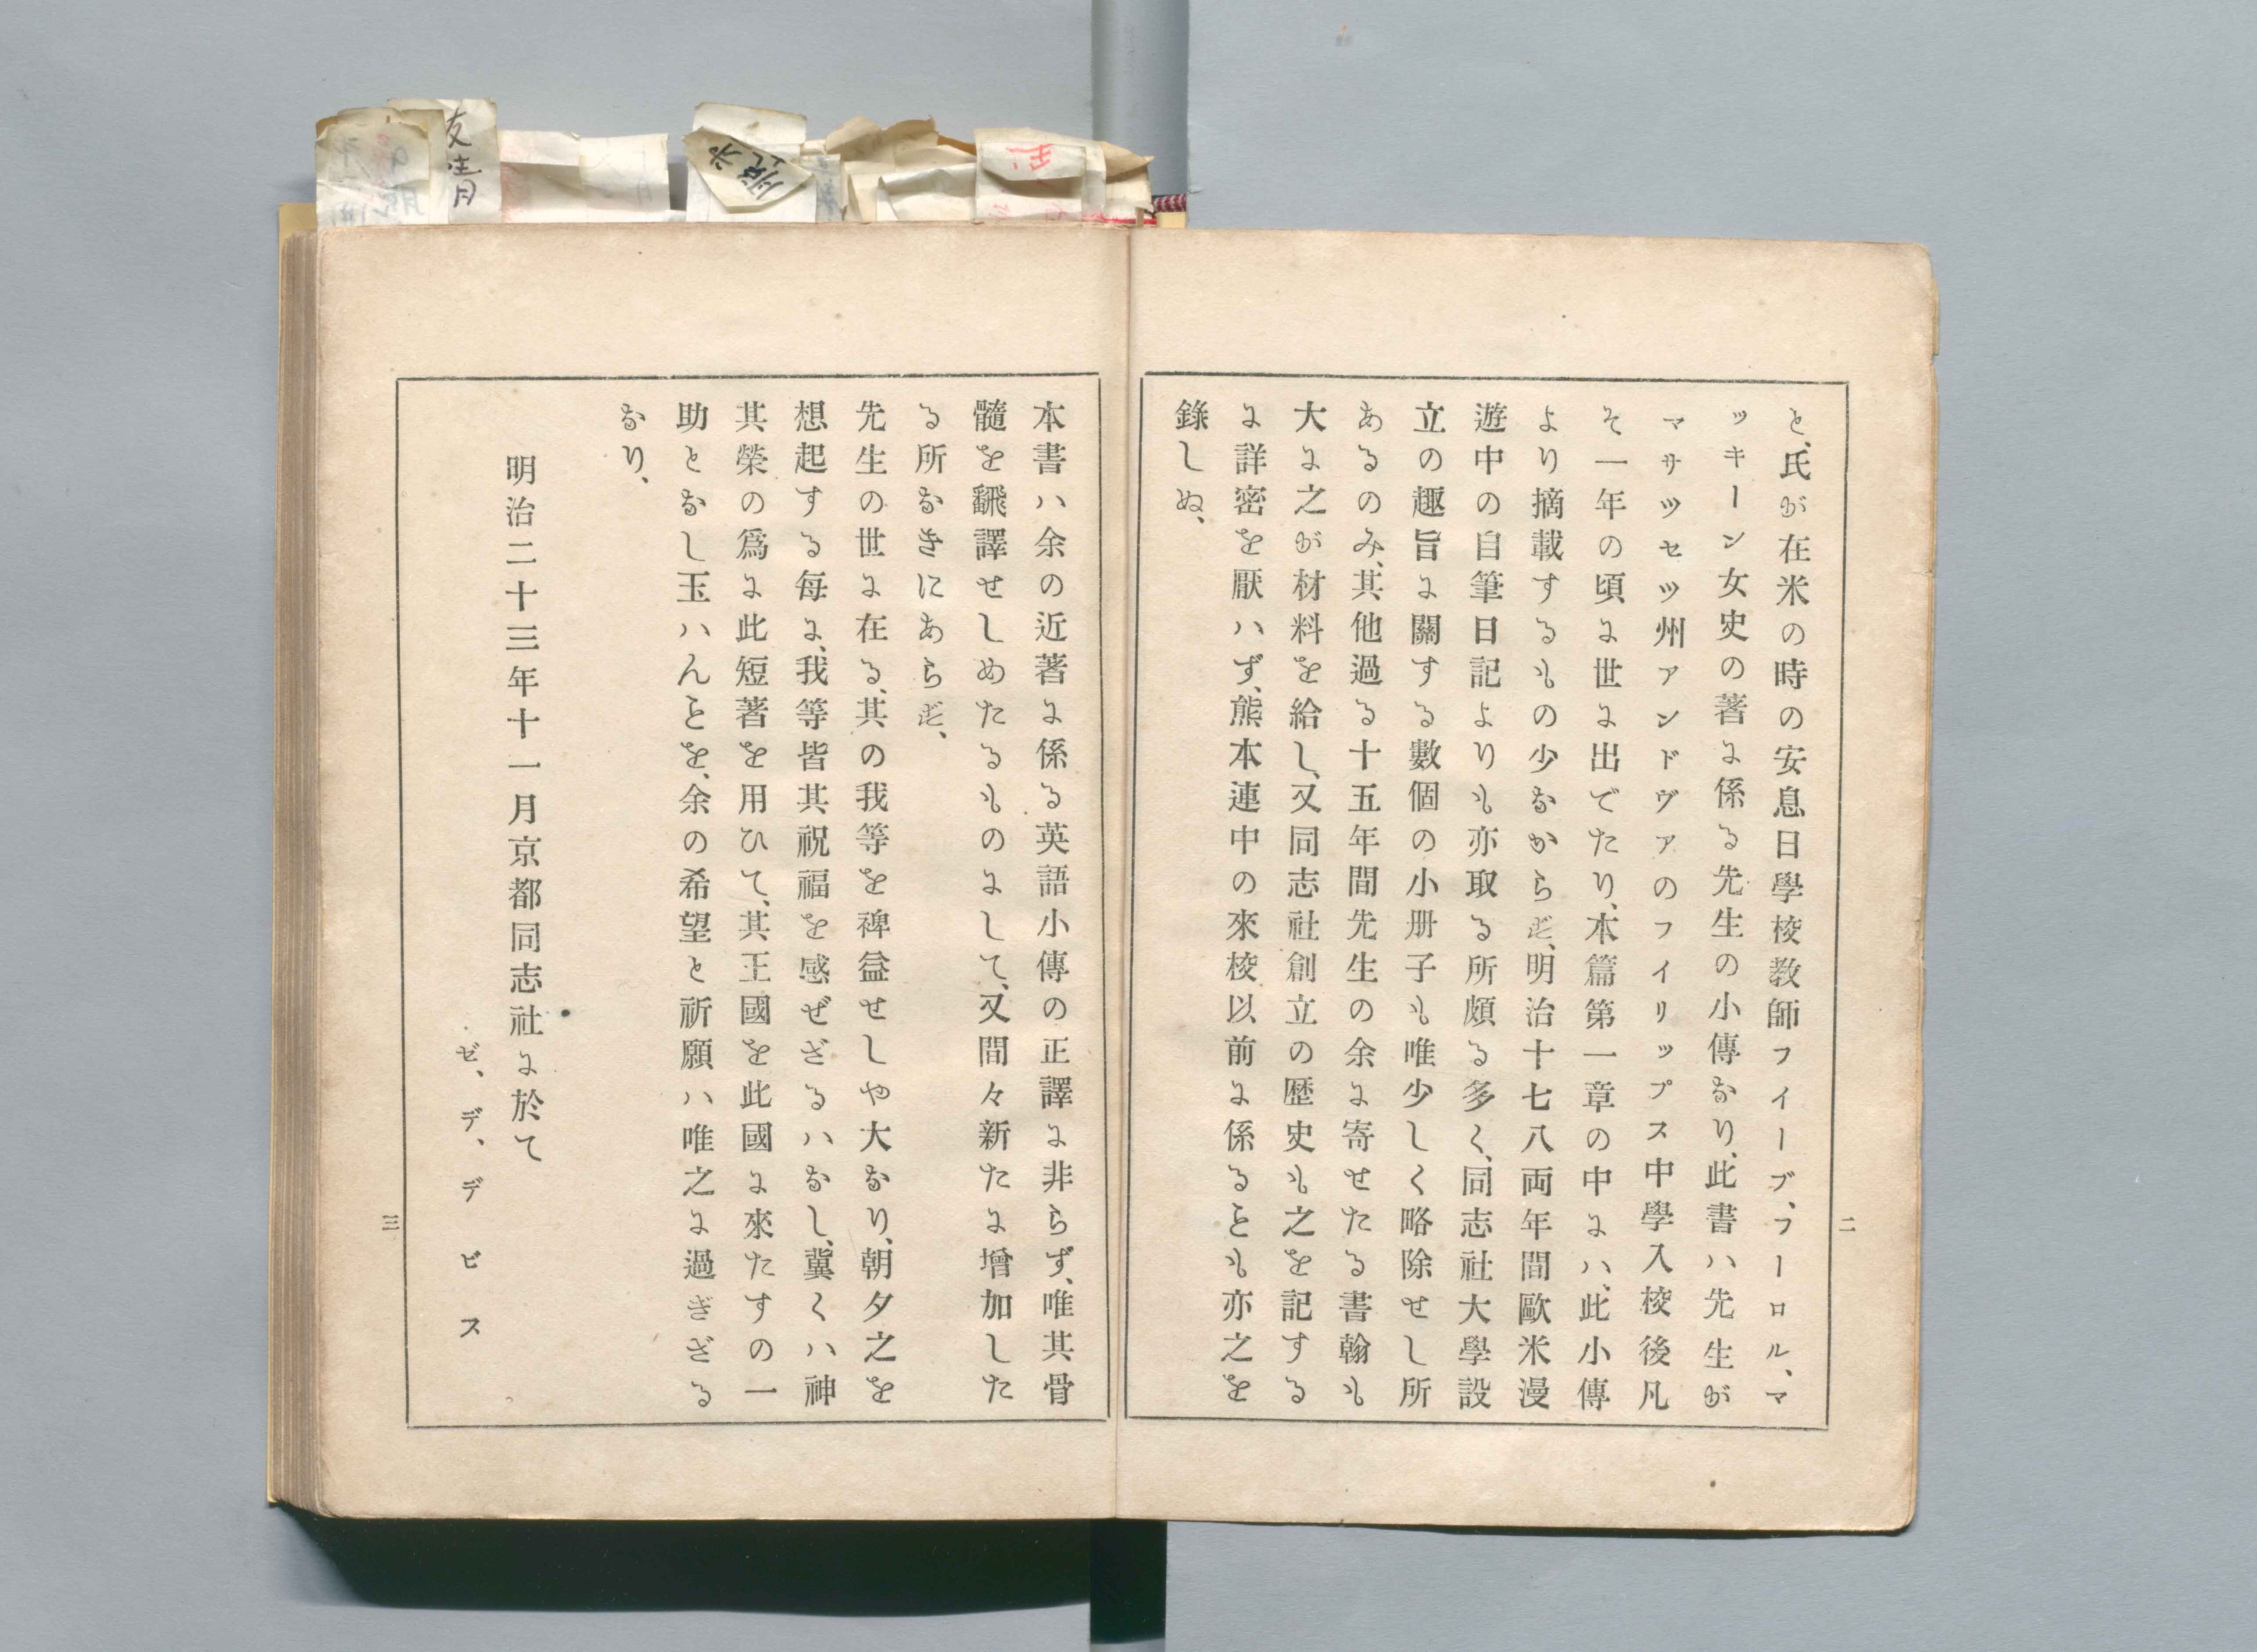 二
と、氏が在米の時の安息日學校教師フイーブ、フーロル、マ
ッキーン女史の著に係る先生の小傳なり、此書ハ先生が
マサツセッツ州アンドヴァアのフイリップス中學入校後凡
そ一年の頃に世に出でたり、本篇第一章の中にハ、此小傳
より摘載するもの少なからず、明治十七八両年間歐米漫
遊中の自筆日記よりも亦取る所頗る多く、同志社大學設
立の趣旨に關する數個の小册子も唯少しく略除せし所
あるのみ、其他過る十五年間先生の余に寄せたる書翰も
大に之が材料を給し、又同志社創立の歷史も之を記する
に詳密を厭ハず、熊本連中の來校以前に係るヿも亦之を
錄しぬ、
本書ハ余の近著に係る英語小傳の正譯に非らず、唯其骨
髓を飜譯せしめたるものにして、又間々新たに增加した
る所なきにあらず、
先生の世に在る、其の我等を裨益せしや大なり、朝夕之を
想起する每に、我等皆其祝福を感ぜざるハなし、冀くハ神
其榮の爲に此短著を用ひて、其王國を此國に來たすの一
助となし玉ハんヿを、余の希望と祈願ハ唯之に過ぎざる
なり、
明治二十三年十一月京都同志社に於て
ゼ、デ、デビス
三
友靑